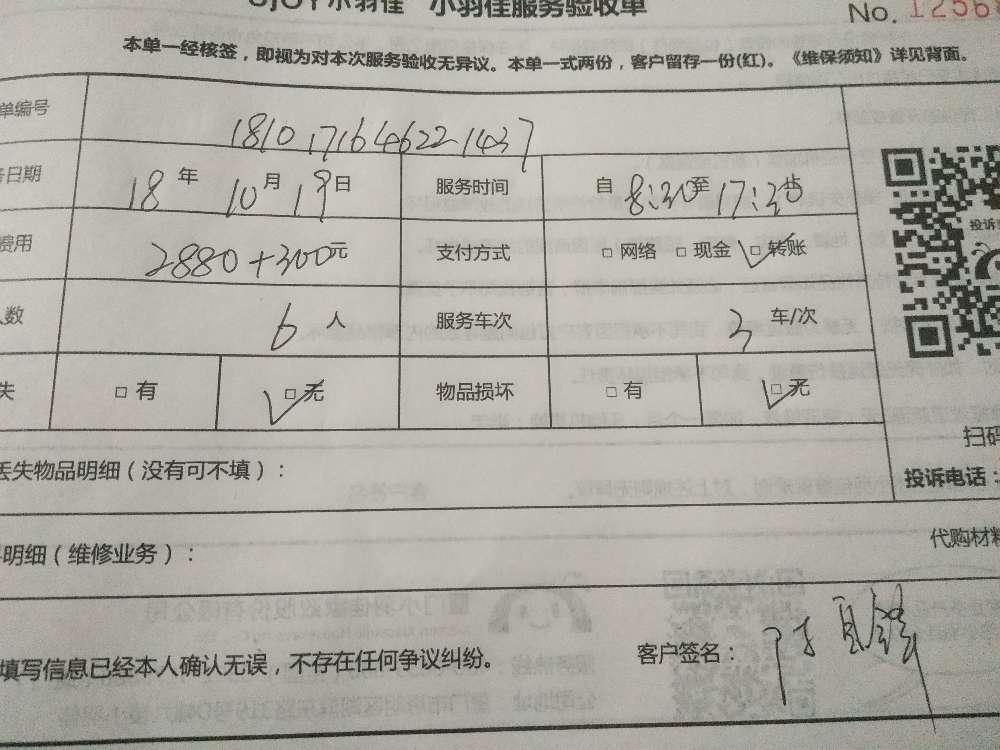 小羽佳 小羽佳服务验收单
No. 1256
本单一经核签，即视为对本次服务验收无异议。本单一式两份，客户留存一份(红)。《维保须知》详见背面。
单编号 1810171646221437
务日期 18 年 10 月 19 日 服务时间 自 8:30 至 17:30 止
费用 2880+300元 支付方式 □ 网络 □ 现金 □ 转账
人数 6 人 服务车次 3 车/次
失 □ 有 □ 无 物品损坏 □ 有 □ 无
扫码
投诉电话：
丢失物品明细（没有可不填）：
明细（维修业务）：
代购材料
填写信息已经本人确认无误，不存在任何争议纠纷。
客户签名：